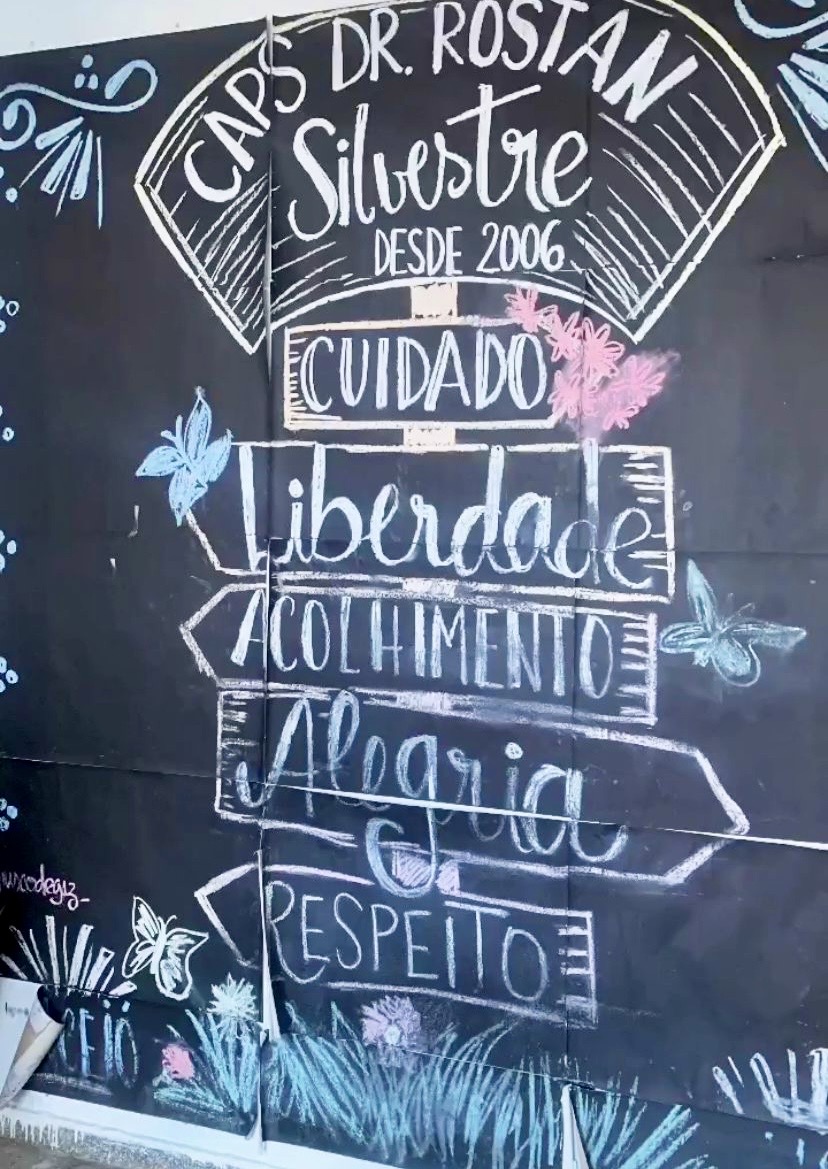 CAPS DR. ROSTAN
Silvestre
DESDE 2006
CUIDADO
Liberdade
ACOLHIMENTO
Alegria
RESPEITO